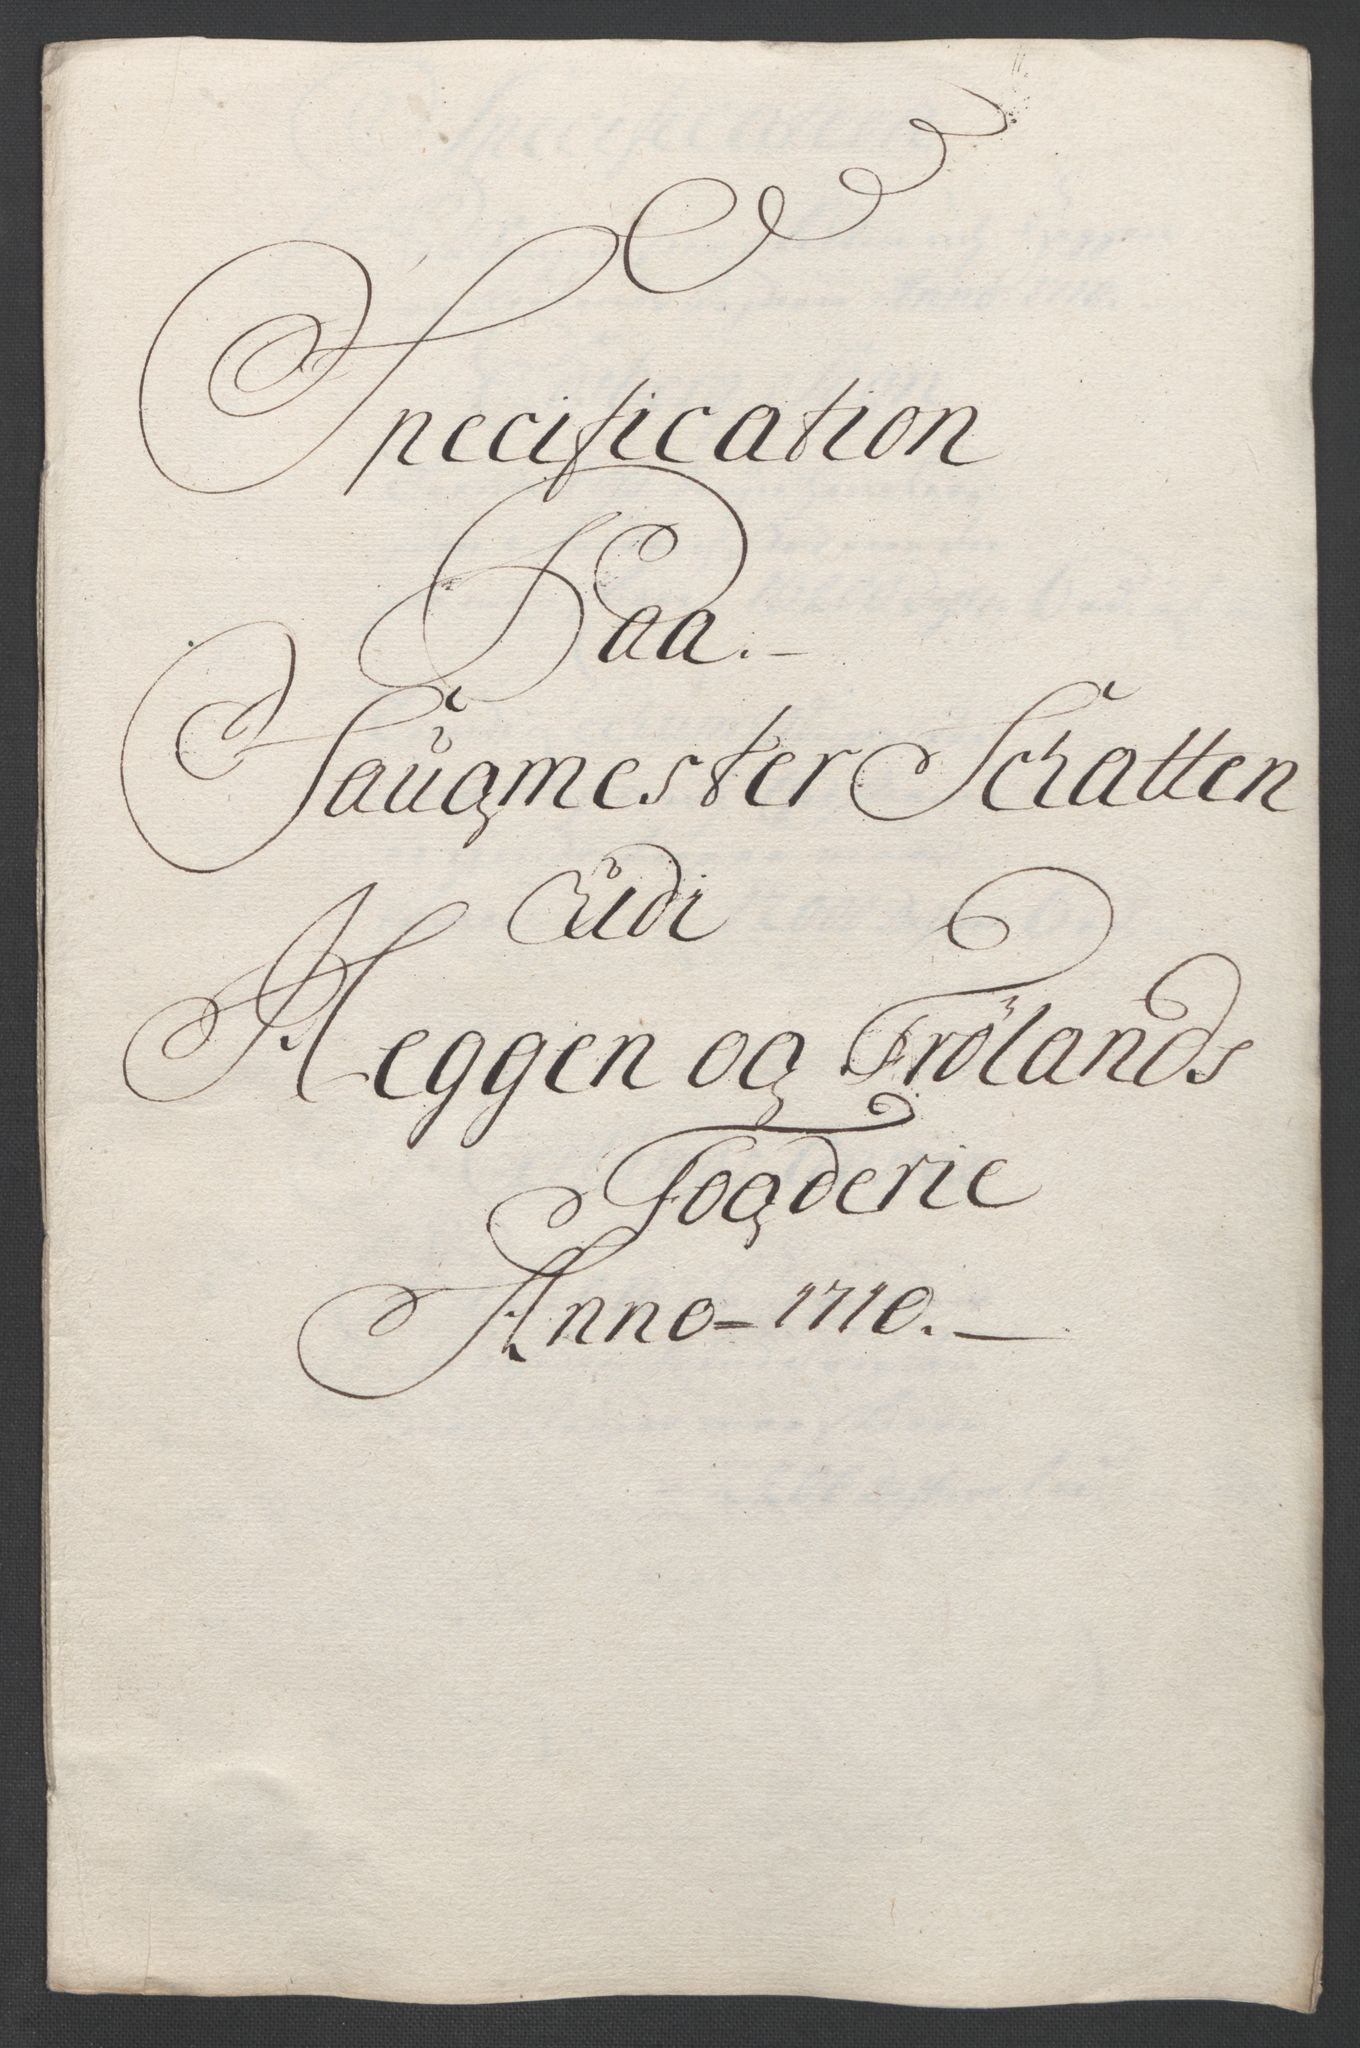 Specification
Paa.
Saugmester Schatten
Udi
Heggen og Frölands
Fogderie
Anno - 1710.